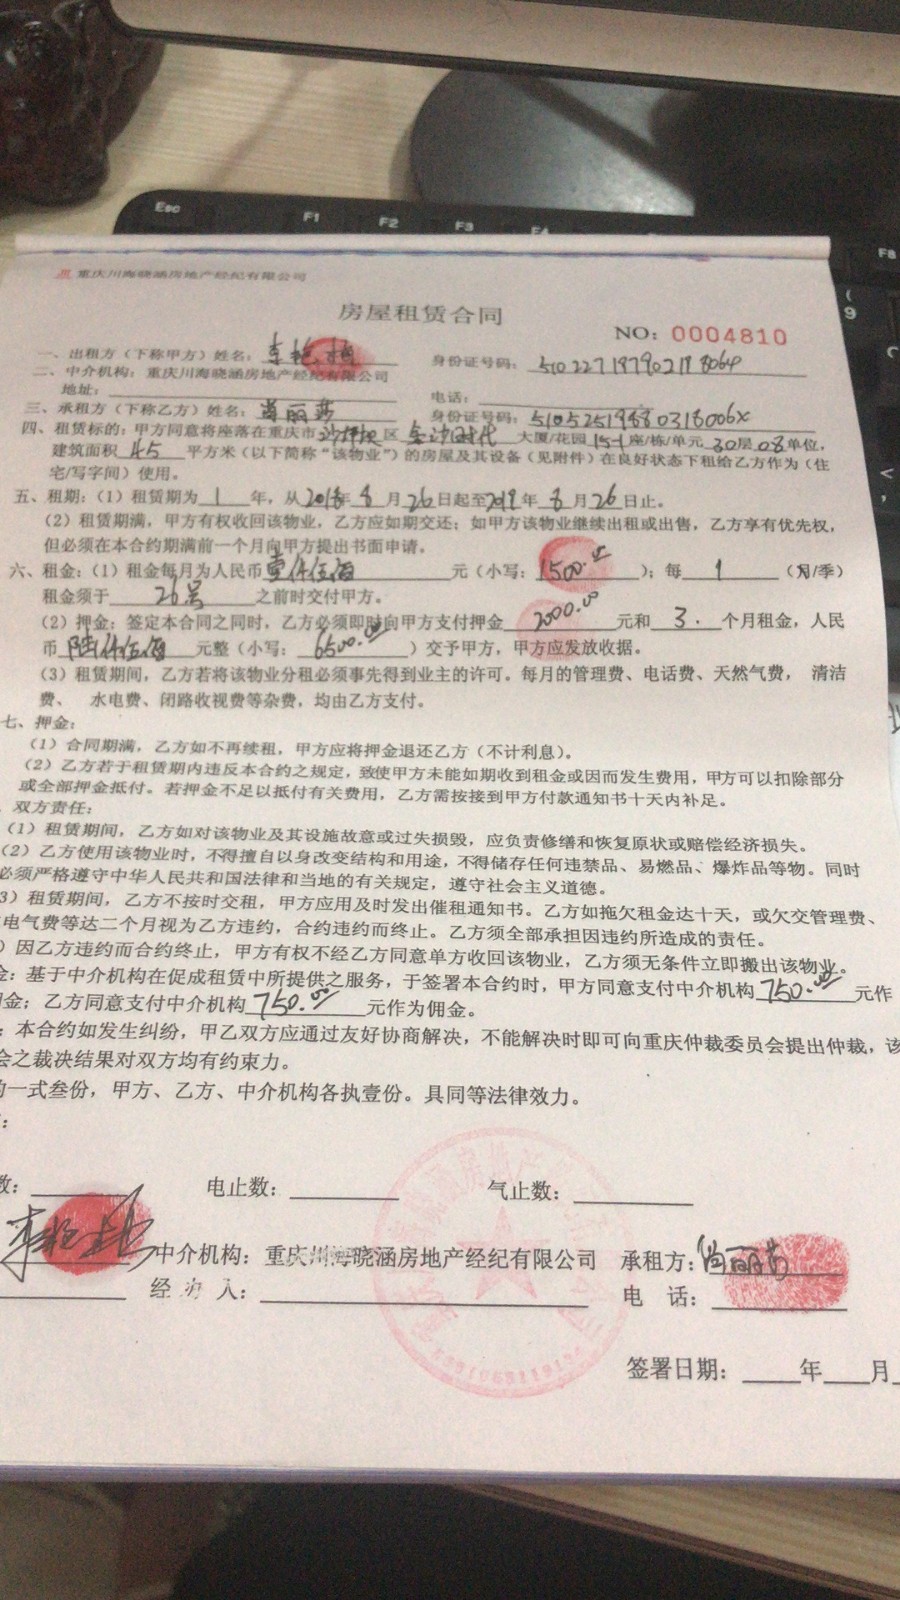 重庆川海晓涵房地产经纪有限公司
房屋租赁合同
NO: 0004810
一、出租方（下称甲方）姓名： 李艳 身份证号码：
二、中介机构：重庆川海晓涵房地产经纪有限公司
地址： 电话：
三、承租方（下称乙方）姓名： 丽莎 身份证号码：51052519880318006X
四、租赁标的：甲方同意将座落在重庆市沙坪坝区 金沙时代 大厦/花园 15-1 座/栋/单元 30层 08 单位，
建筑面积 45 平方米（以下简称“该物业”）的房屋及其设备（见附件）在良好状态下租给乙方作为（住
宅/写字间）使用。
五、租期：（1）租赁期为 1 年，从2018年 8 月 26 日起至2019年 8 月 26 日止。
（2）租赁期满，甲方有权收回该物业，乙方应如期交还；如甲方该物业继续出租或出售，乙方享有优先权，
但必须在本合约期满前一个月向甲方提出书面申请。
六、租金：（1）租金每月为人民币壹仟伍佰 元（小写：1500.00）；每 1 （月/季）
租金须于 26号 之前时交付甲方。
（2）押金：签定本合同之同时，乙方必须即时向甲方支付押金 2000.00 元和 3. 个月租金，人民
币 陆仟伍佰 元整（小写： 6500.00 ）交予甲方，甲方应发放收据。
（3）租赁期间，乙方若将该物业分租必须事先得到业主的许可。每月的管理费、电话费、天然气费， 清洁
费、 水电费、闭路收视费等杂费，均由乙方支付。
七、押金：
（1）合同期满，乙方如不再续租，甲方应将押金退还乙方（不计利息）。
（2）乙方若于租赁期内违反本合约之规定，致使甲方未能如期收到租金或因而发生费用，甲方可以扣除部分
或全部押金抵付。若押金不足以抵付有关费用，乙方需按接到甲方付款通知书十天内补足。
、双方责任：
（1）租赁期间，乙方如对该物业及其设施故意或过失损毁，应负责修缮和恢复原状或赔偿经济损失。
（2）乙方使用该物业时，不得擅自以身改变结构和用途，不得储存任何违禁品、易燃品、爆炸品等物。同时
必须严格遵守中华人民共和国法律和当地的有关规定，遵守社会主义道德。
3）租赁期间，乙方不按时交租，甲方应用及时发出催租通知书。乙方如拖欠租金达十天，或欠交管理费、
电气费等达二个月视为乙方违约，合约违约而终止。乙方须全部承担因违约所造成的责任。
）因乙方违约而合约终止，甲方有权不经乙方同意单方收回该物业，乙方须无条件立即搬出该物业。
金：基于中介机构在促成租赁中所提供之服务，于签署本合约时，甲方同意支付中介机构 750.00 元作
金；乙方同意支付中介机构 750.00 元作为佣金。
：本合约如发生纠纷，甲乙双方应通过友好协商解决，不能解决时即可向重庆仲裁委员会提出仲裁，该
会之裁决结果对双方均有约束力。
约一式叁份，甲方、乙方、中介机构各执壹份。具同等法律效力。
：
数： 电止数： 气止数：
李艳 中介机构：重庆川海晓涵房地产经纪有限公司 承租方： 丽莎
经办人： 电 话：
签署日期： 年 月
Esc F1 F2 F3 F4 F8
( 9
C
< ,